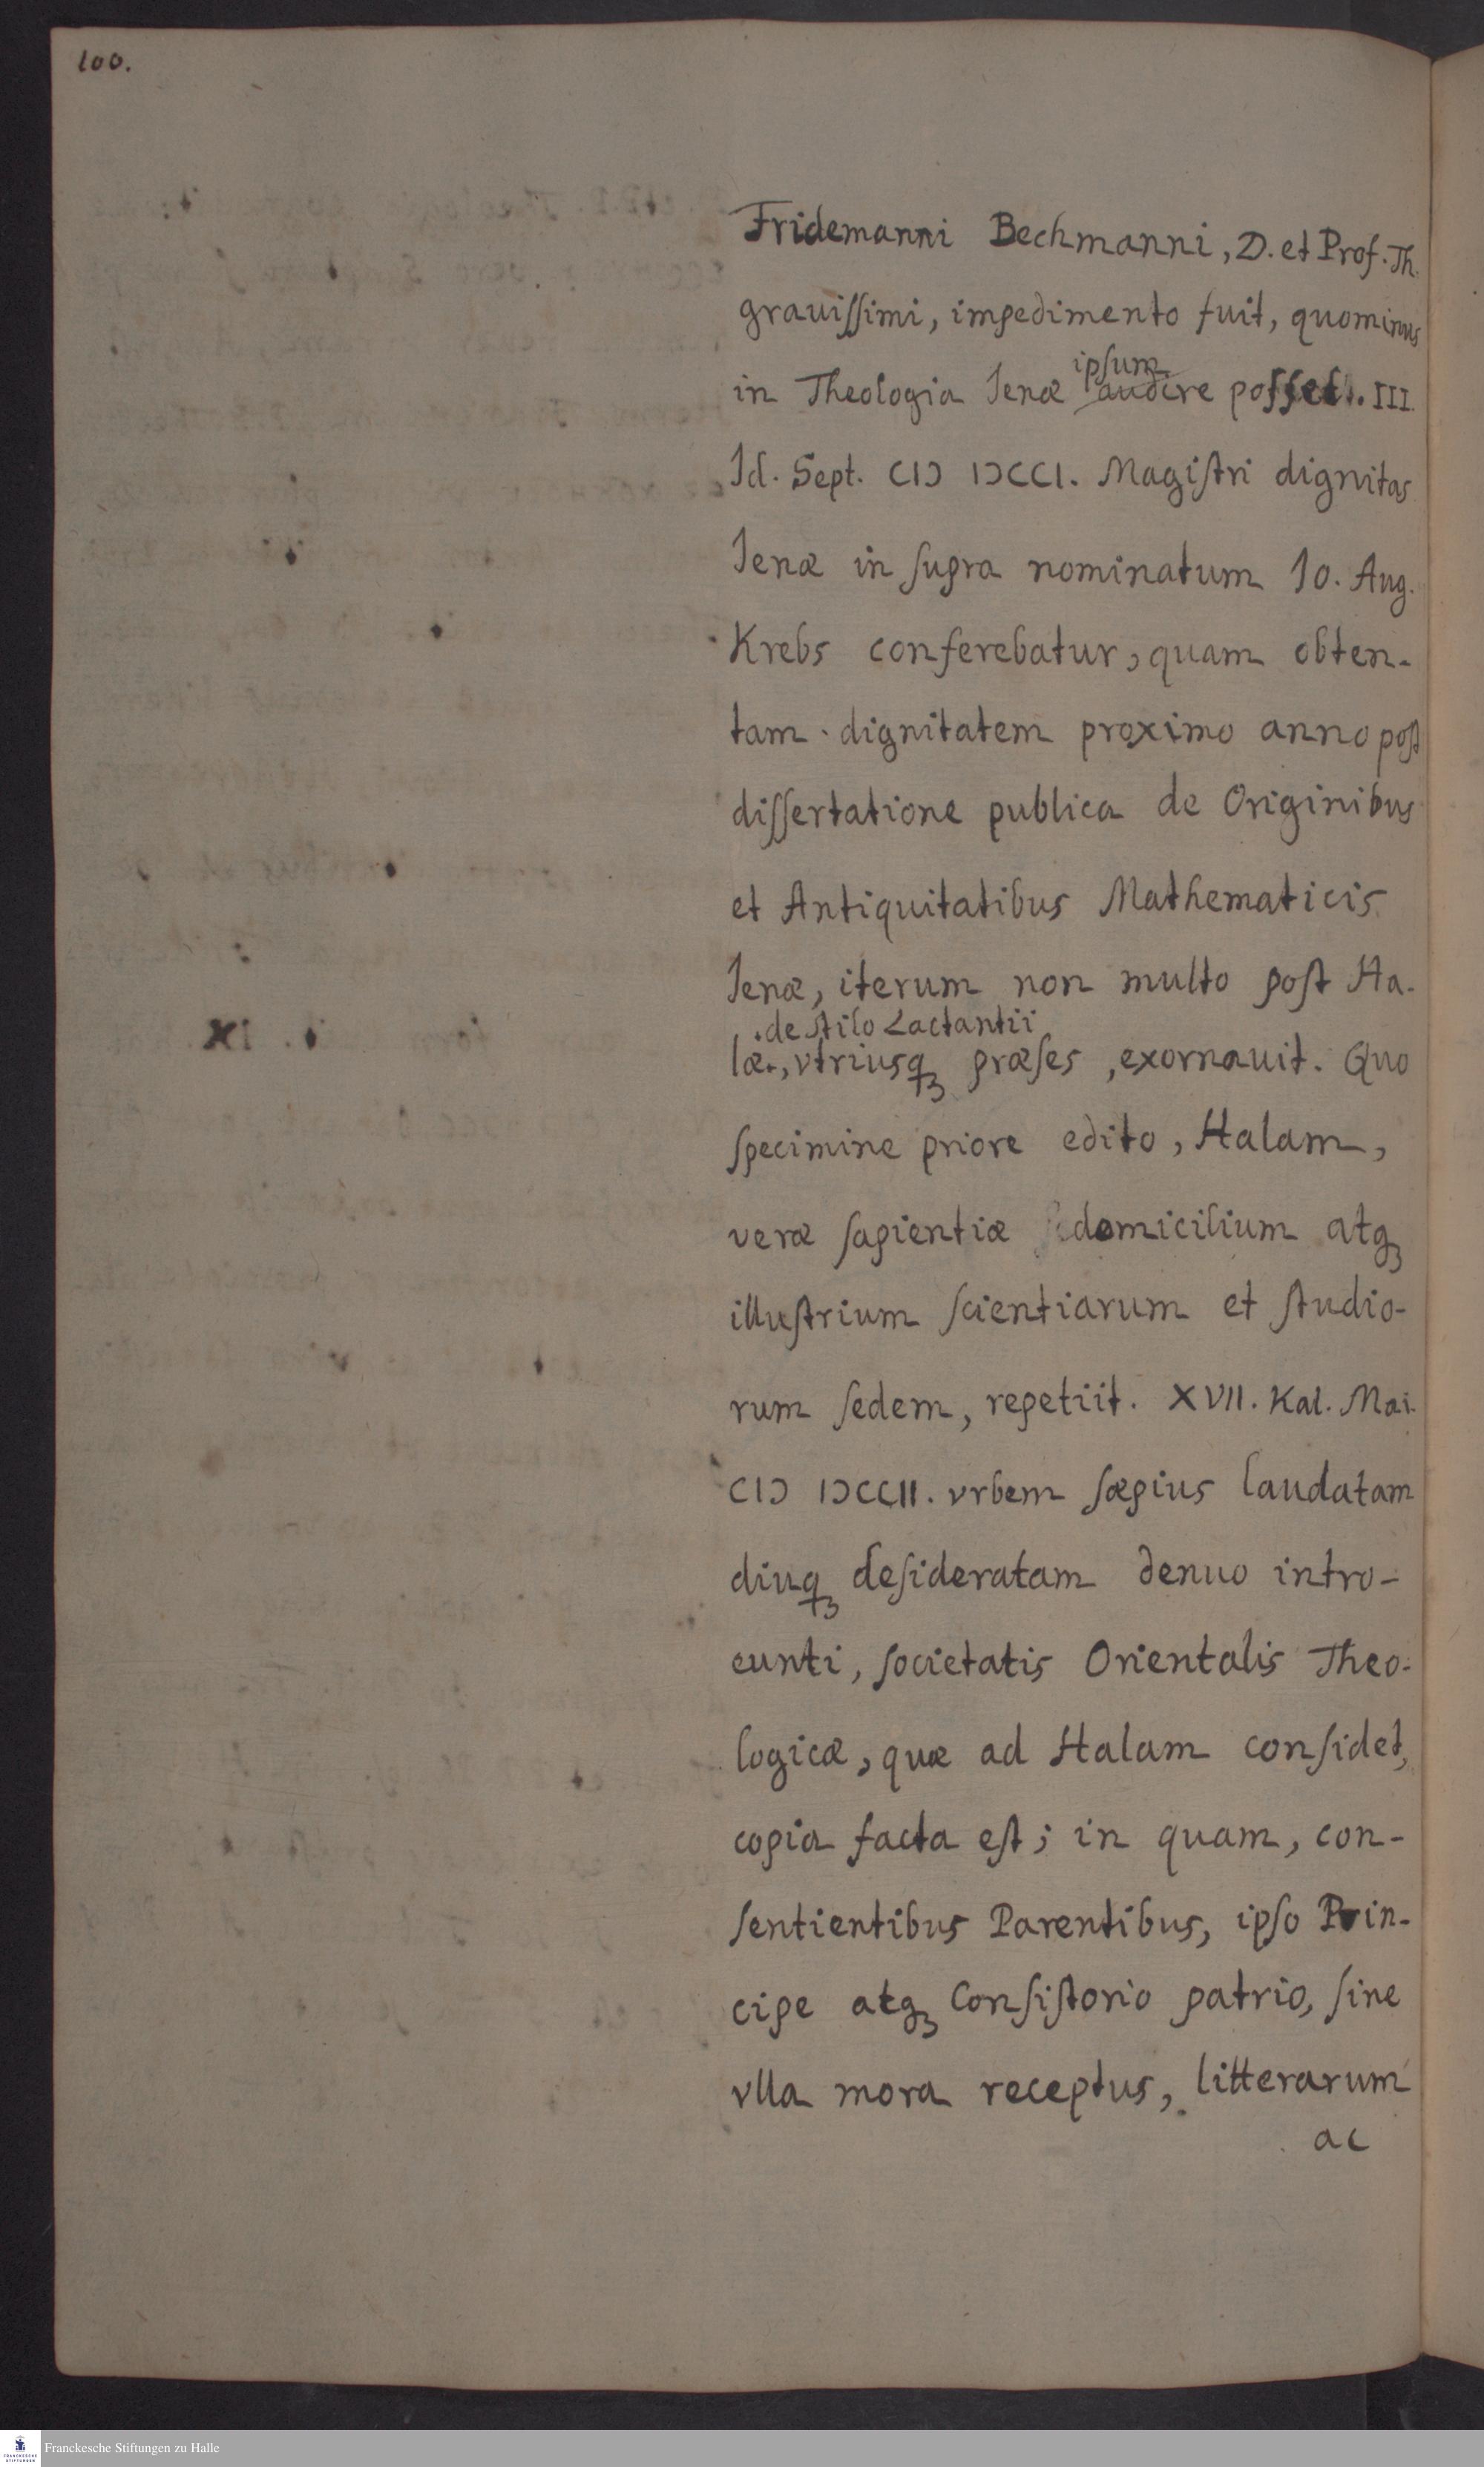 100.
Fridemanni Bechmanni, D. et Prof. Th.
grauiſſimi, impedimento fuit, quominus
ipſum
in Theologia Jenæ audire poſſet. III.
Id. Sept. CIↃ IↃCCI. Magiſtri dignitas
Jenæ in ſupra nominatum Io. Aug.
Krebs conferebatur, quam obten-
tam dignitatem proximo anno poſt
diſſertatione publica de Originibus
et Antiquitatibus Mathematicis
Jenæ, iterum non multo poſt Ha-
+de ſtilo Lactantii
læ+, vtriusqꝫ præſes, exornauit. Quo
ſpecimine priore edito, Halam,
veræ ſapientiæ domicilium atqꝫ
illuſtrium ſcientiarum et ſtudio-
rum ſedem, repetiit. XVII. Kal. Mai.
XI.
CIↃ IↃCCII. vrbem ſæpius laudatam
diuqꝫ deſideratam denuo intro-
eunti, ſocietatis Orientalis Theo-
logicæ, quæ ad Halam conſidet,
copia facta eſt; in quam, con-
ſentientibus Parentibus, ipſo Prin-
cipe atqꝫ Conſiſtorio patrio, ſine
vlla mora receptus, litterarum
ac
FRANCKESCHE STIFTUNGEN
Franckesche Stiftungen zu Halle